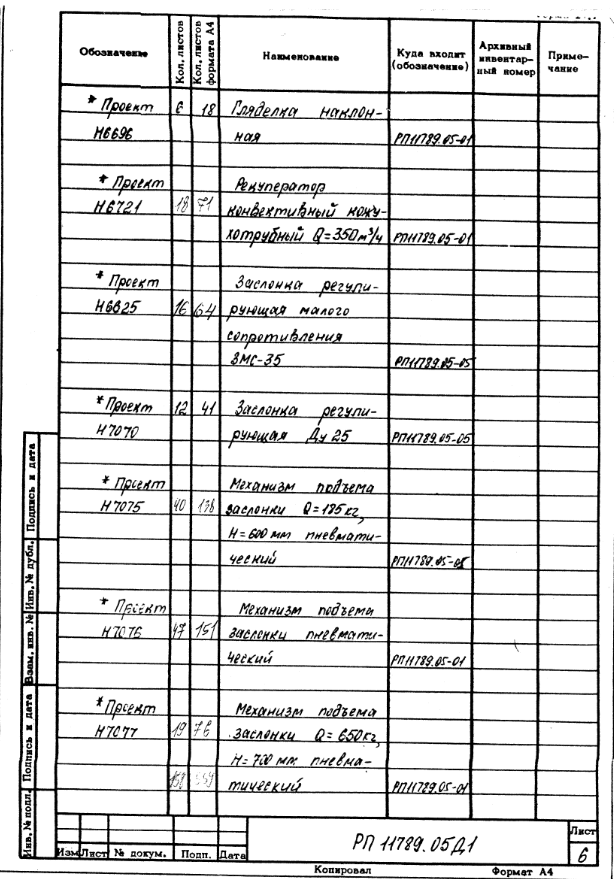 Обозначение
Кол. листов
Кол. листов формата А4
Наименование
Куда входит (обозначение)
Архивный инвентарный номер
Примечание
* Проект 6 18 Гляделка наклон-
Н6696 ная РП11789.05-01
* Проект Рекуператор
Н6721 18 71 конвективный кожу-
хотрубный Q=350м³/ч РП11789.05-01
* Проект Заслонка регули-
Н6825 16 64 рующая малого
сопротивления
ЗМС-35 РП11789.05-05
* Проект 12 41 Заслонка регули-
Н7070 рующая Ду 25 РП11789.05-05
* Проект Механизм подъема
Н7075 40 заслонки Q=185кг,
H=600мм пневмати-
ческий РП11789.05-01
* Проект Механизм подъема
Н7076 47 151 заслонки пневмати-
ческий РП11789.05-01
* Проект Механизм подъема
Н7077 19 76 заслонки Q=650кг,
H=700мм пневма-
158 тический РП11789.05-01
Инв. № подл.
Подпись и дата
Взам. инв. №
Инв. № дубл.
Подпись и дата
РП 11789.05Д1
Лист
6
Изм Лист № докум. Подп. Дата
Копировал Формат А4